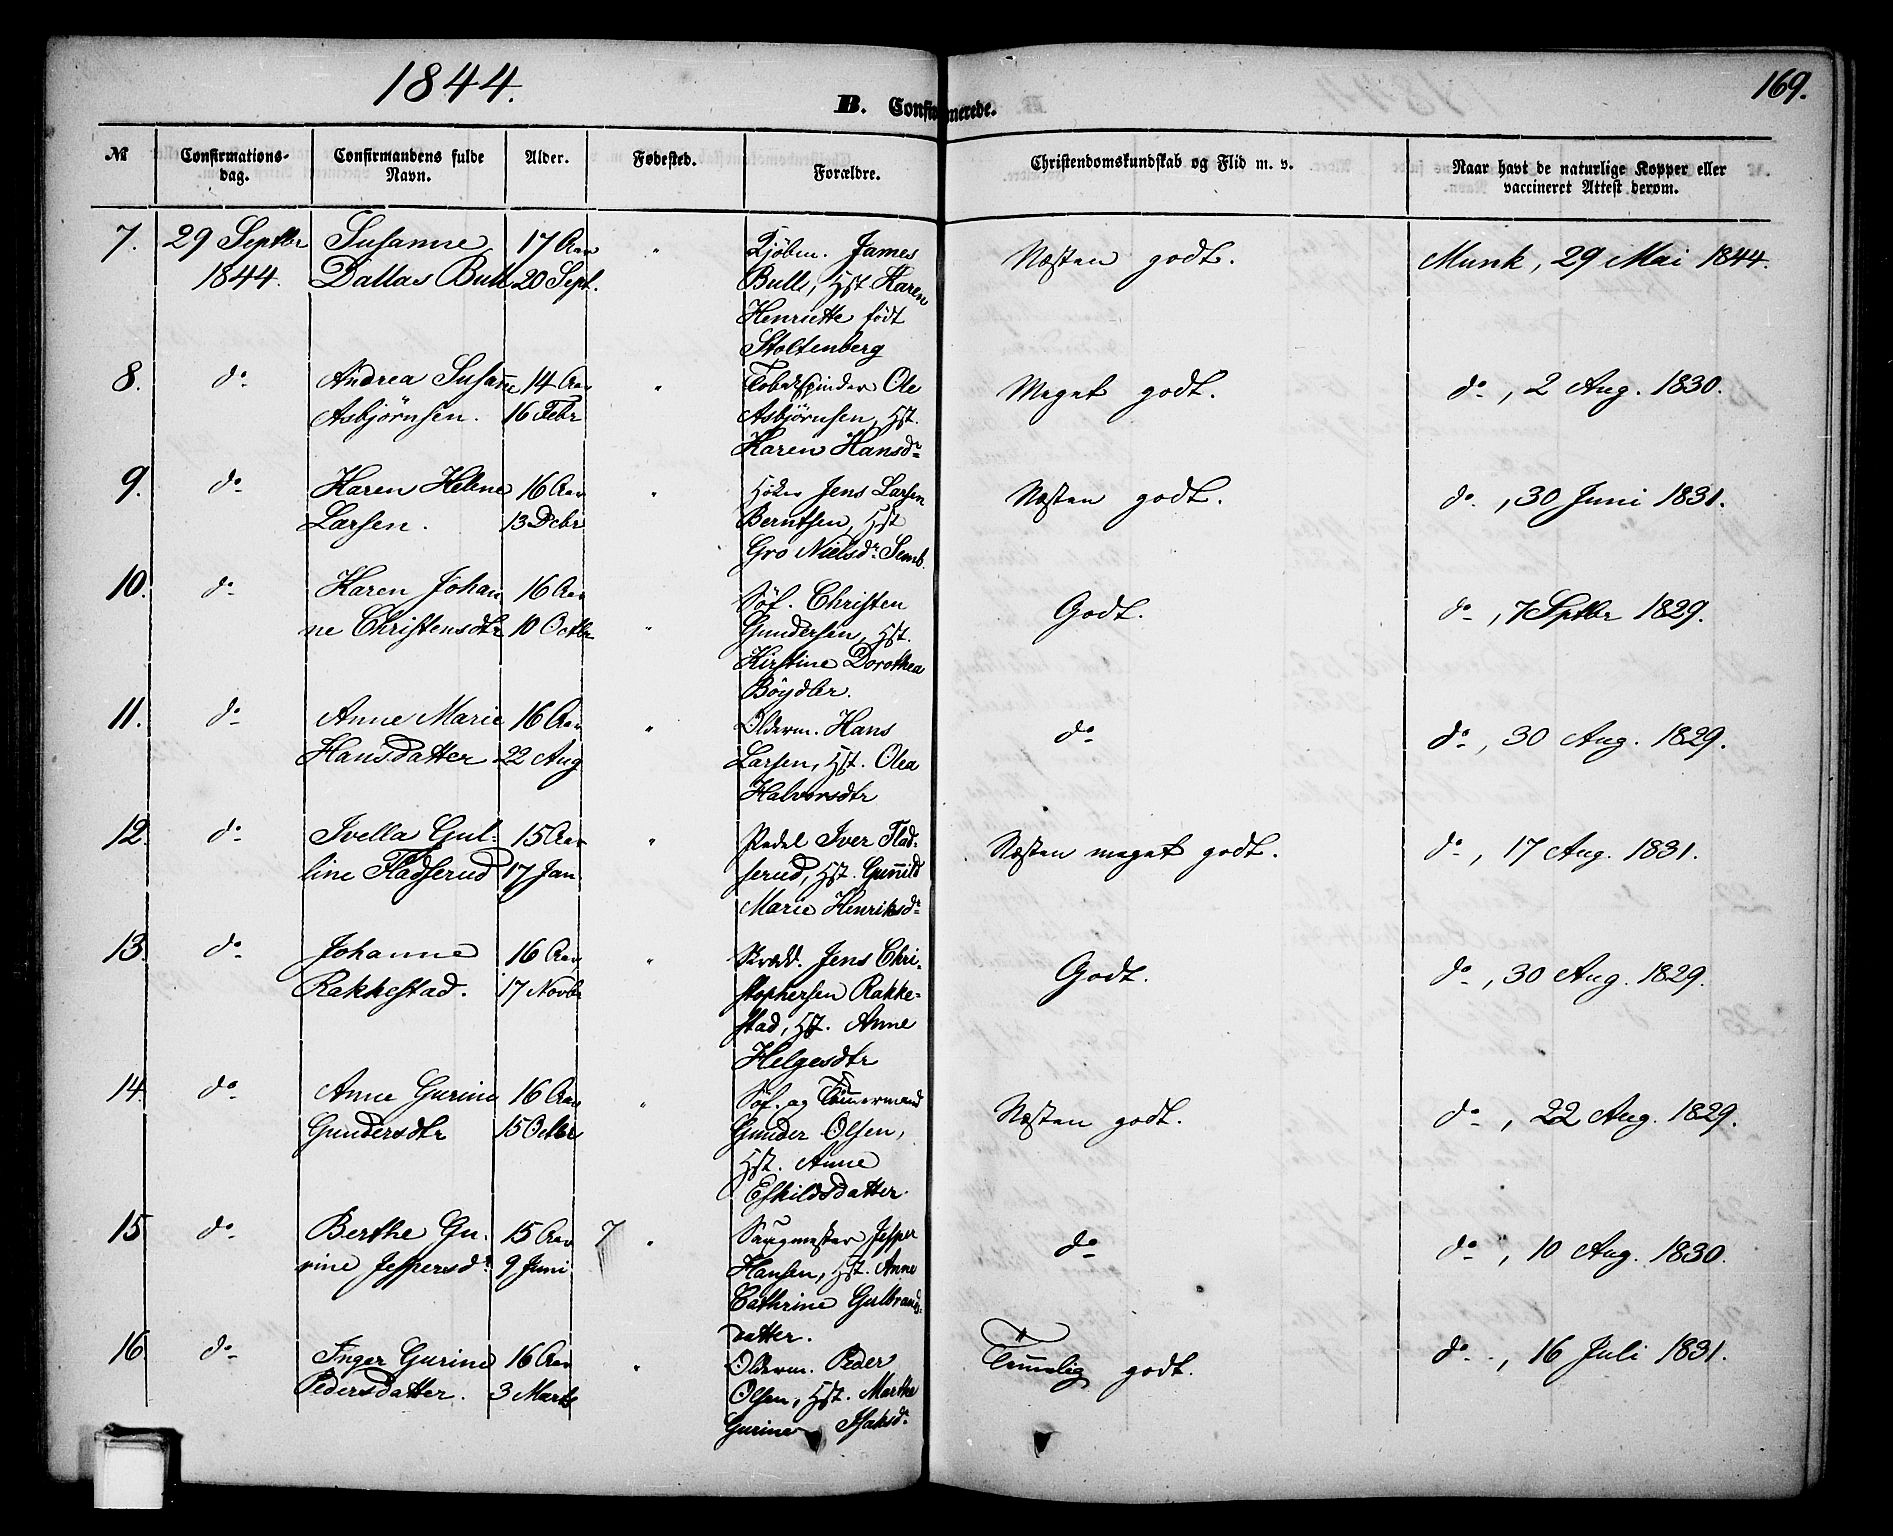 1844.
169.
B. Confirmerede.
№ Confirmations- dag. Confirmandens fulde Navn. Alder. Fødested. Forældre. Christendomskundskab og Flid m. v. Naar havt de naturlige Kopper eller vaccineret Attest derom.
7. 29 Septbr Susanne 17 Aar " Kjøbm. James Næsten godt. Munk, 29 Mai 1844.
1844. Dallas Bull 20 Sept. Bull, Hst Karen
Henriette født
Stoltenberg
8. do Andrea Susane 14 Aar " Tobakspinder Ole Meget godt. do, 2 Aug. 1830.
Asbjørnsen. 16 Febr Asbjørnsen, Hst.
Karen Hansdr
9. do Karen Helene 16 Aar " Høker Jens Larsen Næsten godt. do, 30 Juni 1831.
Larsen. 13 Debr Berntsen, Hst
Gro Nielsdr Semb.
10. do Karen Johan 16 Aar " Søf. Christen Godt. do, 7 Sptbr 1829.
ne Christensdtr 10 Octbr Gundersen, Hst.
Kirstine Dorothea
Bøydler.
11. do Anne Marie 16 Aar " Olderm. Hans do do, 30 Aug. 1829.
Hansdatter 22 Aug Larsen, Hst. Olea
Halvorsdtr
12. do Ivella Gul- 15 Aar " Pedel Iver Flad- Næsten meget godt. do, 17 Aug. 1831.
line Fladserud 17 Jan serud, Hst. Gunnild
Marie Henriksdr
13. do Johanne 16 Aar " Skrædd. Jens Chri- Godt. do, 30 Aug. 1829.
Rakkestad. 17 Novbr stophersen Rakke-
stad, Hst. Anne
Helgesdtr
14. do Anne Gurine 16 Aar " Søf. og Tømmermand Næsten godt. do, 22 Aug. 1829.
Gundersdtr 15 Octbr Gunder Olsen,
Hst. Anne
Eskildsdatter.
15 do Berthe Gu- 15 Aar 7 " Saugmester Jesper do do, 10 Aug. 1830.
rine Jespersdr 9 Juni Hansen, Hst. Anne
Cathrine Gulbrands-
datter.
16. do Inger Gurine 16 Aar " Olderm. Peder Temmelig godt. do, 16 Juli 1831.
Pedersdatter. 3 Marts Olsen, Hst. Marthe
Gurine Isaksdr